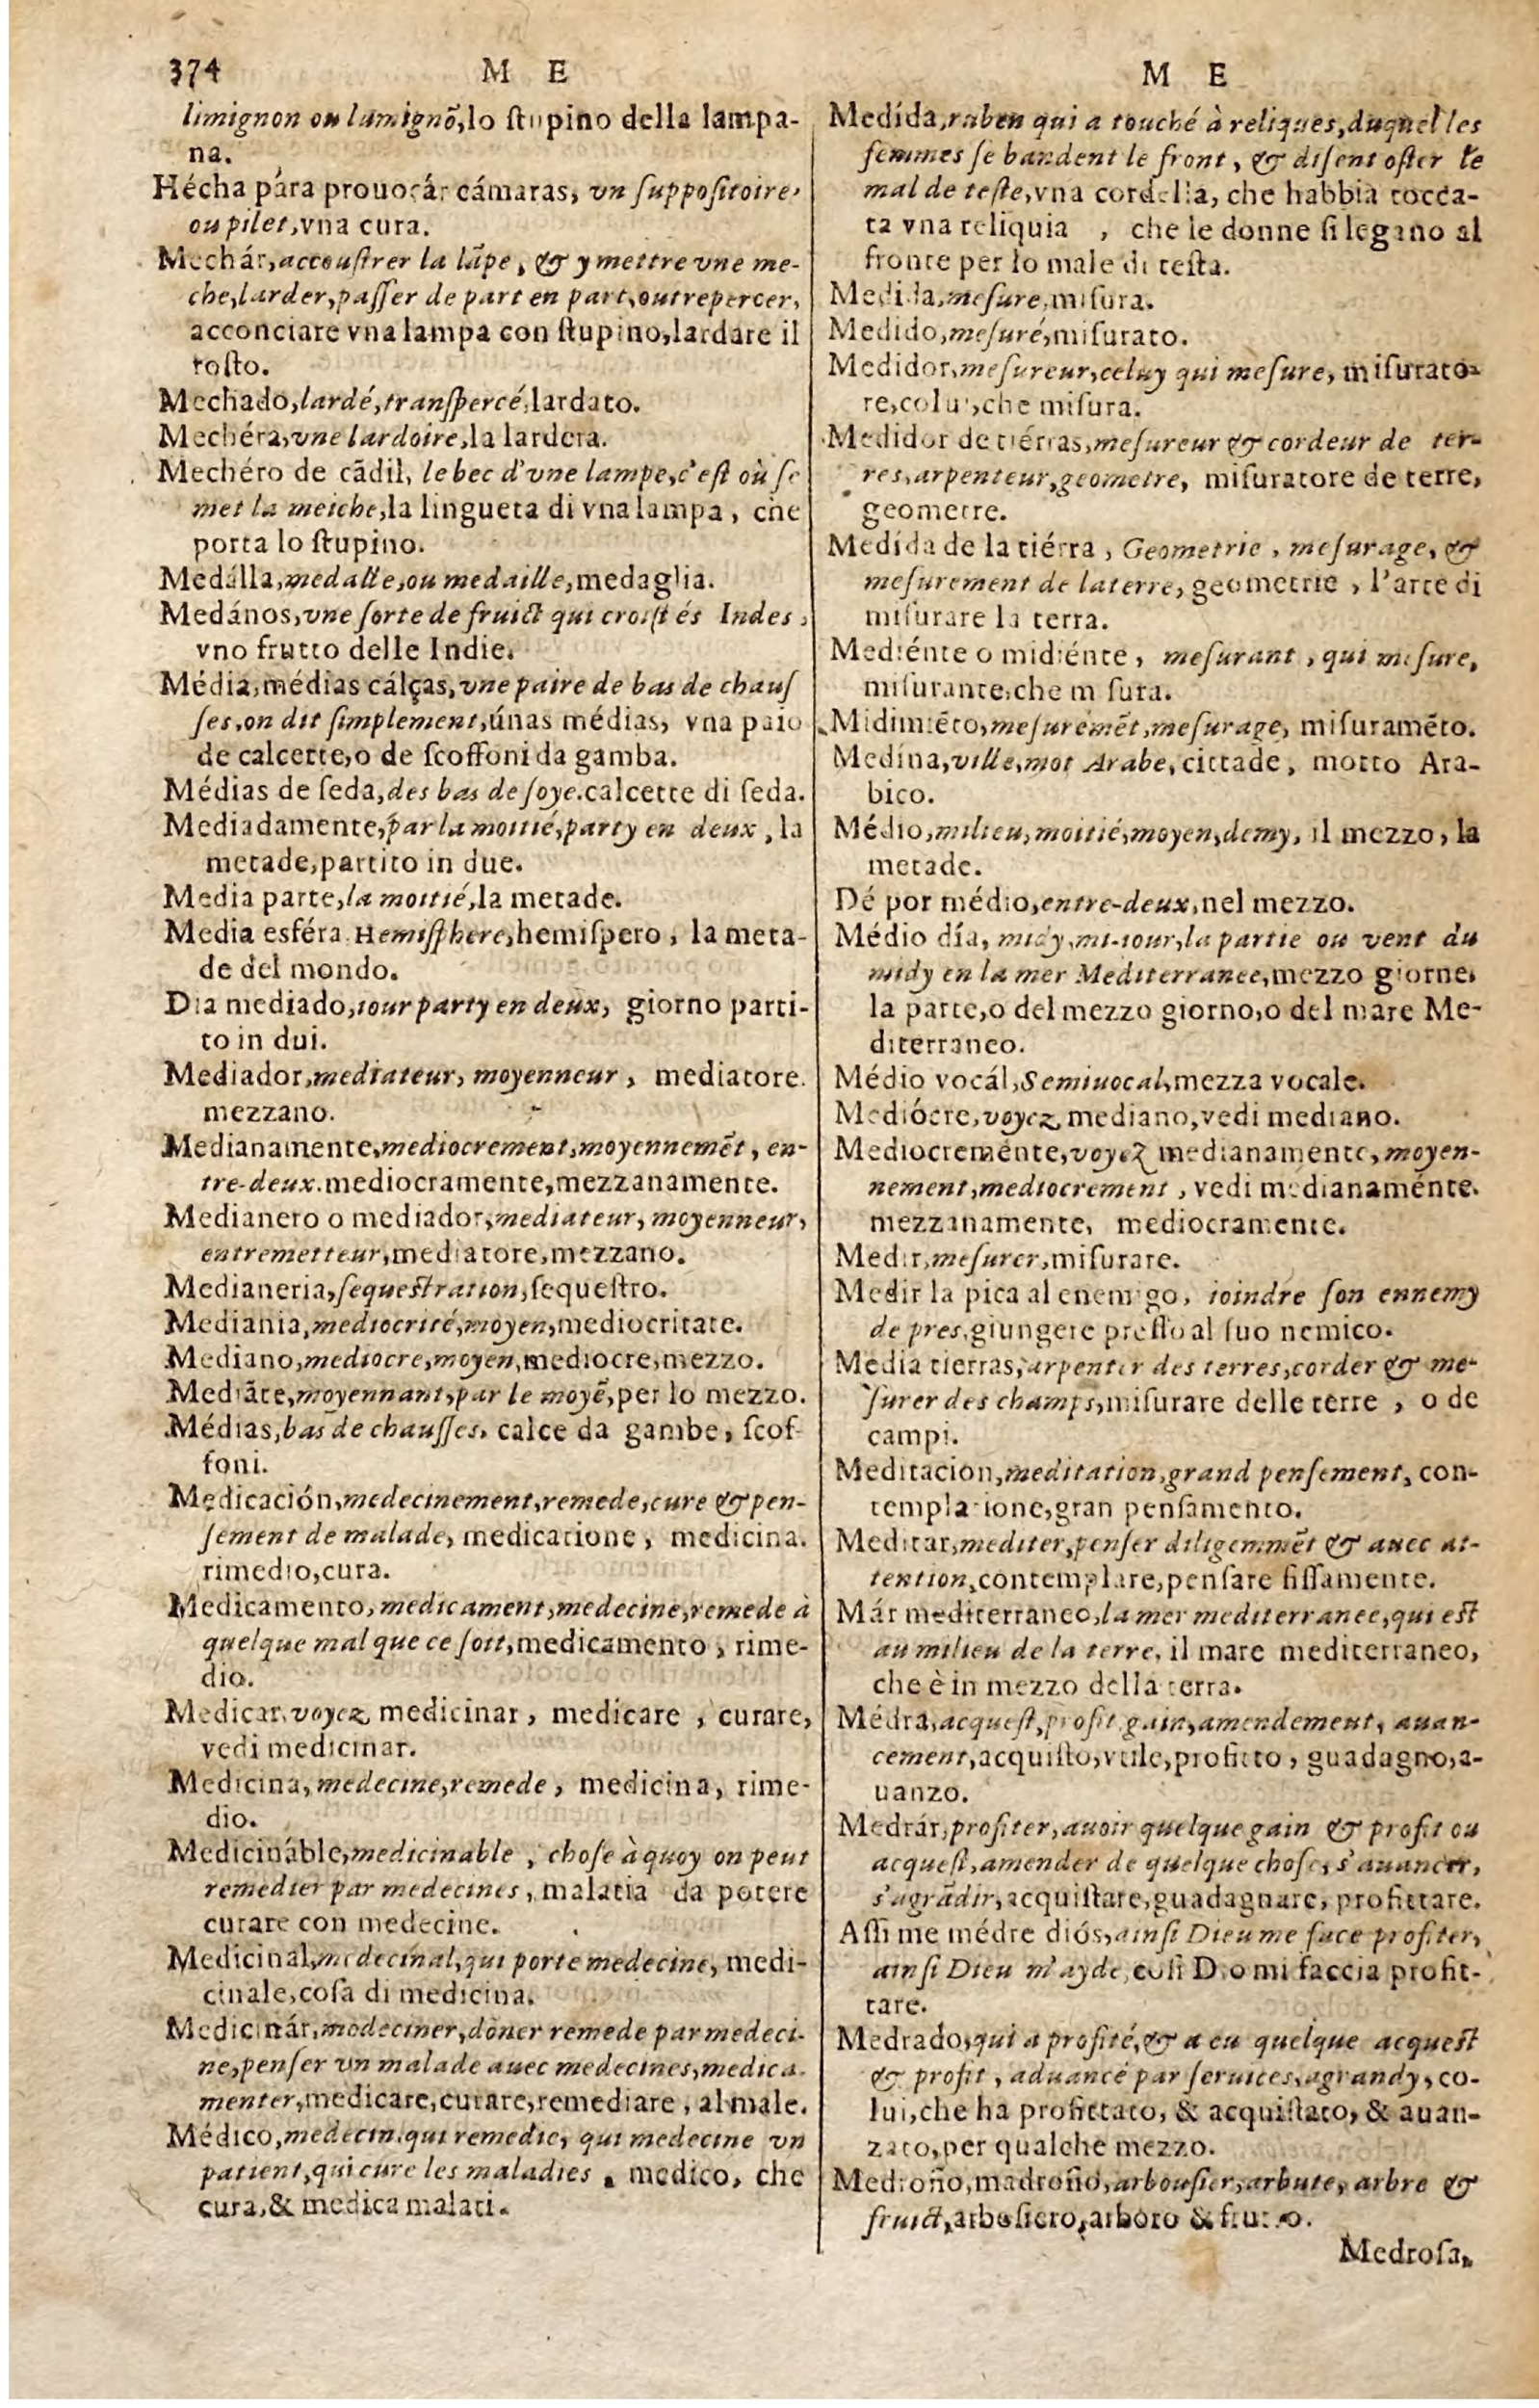 374 M E
limignon ou lamignõ,lo ſtupino della lampa-
na.
Hécha pára prouocár cámaras, vn ſuppoſitoire,
ou pilet,vna cura.
Mechár,accouſtrer la lãpe, & y mettre vne me-
che,larder,paſſer de part en part,outrepercer,
acconciare vna lampa con ſtupino,lardare il
roſto.
Mechado,lardé,tranſpercé,lardato.
Mechéra,vne lardoire,la lardera.
Mechéro de cãdil, le bec d'vne lampe,c'eſt où ſe
met la meiche,la lingueta di vna lampa, che
porta lo ſtupino.
Medálla,medalle,ou medaille,medaglia.
Medános,vne ſorte de fruict qui croiſt és Indes,
vno frutto delle Indie.
Média,médias cálças,vne paire de bas de chauſ
ſes,on dit ſimplement,únas médias, vna paio
de calcette,o de ſcoffoni da gamba.
Médias de ſeda,des bas de ſoye.calcette di ſeda.
Mediadamente,par la moitié,party en deux, la
metade,partito in due.
Media parte,la moitié,la metade.
Media esféra.Hemiſphere,hemiſpero, la meta-
de del mondo.
Dia mediado,iour party en deux, giorno parti-
to in dui.
Mediador,mediateur, moyenneur, mediatore.
mezzano.
Medianamente,mediocrement,moyennemẽt, en-
tre-deux.mediocramente,mezzanamente.
Medianero o mediador,mediateur, moyenneur,
entremetteur,mediatore,mezzano.
Medianeria,ſequeſtration,ſequeſtro.
Mediania,mediocrité,moyen,mediocritate.
Mediano,mediocre,moyen,mediocre,mezzo.
Mediãte,moyennant,par le moyẽ,per lo mezzo.
Médias,bas de chauſſes, calce da gambe, ſcof-
foni.
Medicación,medecinement,remede,cure & pen-
ſement de malade, medicatione, medicina.
rimedio,cura.
Medicamento,medicament,medecine,remede à
quelque mal que ce ſoit,medicamento, rime-
dio.
Medicar,voyez medicinar, medicare, curare,
vedi medicinar.
Medicina,medecine,remede, medicina, rime-
dio.
Medicináble,medicinable, choſe à quoy on peut
remedier par medecines, malatia da potere
curare con medecine.
Medicinal,medecinal,qui porte medecine, medi-
cinale,coſa di medicina.
Medicinár,medeciner,dõner remede par medeci-
ne,penſer vn malade auec medecines,medica-
menter,medicare,curare,remediare, al male.
Médico,medecin.qui remedie, qui medecine vn
patient,qui cure les maladies, medico, che
cura,& medica malati.
M E
Medída,ruben qui a touché à reliques,duquel les
femmes ſe bandent le front, & diſent oſter le
mal de teſte,vna cordella, che habbia tocca-
ta vna reliquia, che le donne ſi legano al
fronte per lo male di teſta.
Medida,meſure,miſura.
Medido,meſuré,miſurato.
Medidor,meſureur,celuy qui meſure, miſurato-
re,colui,che miſura.
Medidor de tiérras,meſureur & cordeur de ter-
res,arpenteur,geometre, miſuratore de terre,
geometre.
Medída de la tiérra, Geometrie, meſurage, &
meſurement de la terre, geometrie, l'arte di
miſurare la terra.
Mediénte o midiénte, meſurant, qui meſure,
miſurante,che miſura.
Midimiẽto,meſuremẽt,meſurage, miſuramẽto.
Medína,ville,mot Arabe,cittade, motto Ara-
bico.
Médio,milieu,moitié,moyen,demy, il mezzo, la
metade.
Dé por médio,entre-deux,nel mezzo.
Médio día, midy,mi-iour,la partie ou vent du
midy en la mer Mediterranee,mezzo giorne,
la parte,o del mezzo giorno,o del mare Me-
diterraneo.
Médio vocál,Semiuocal,mezza vocale.
Mediócre,voyez mediano,vedi mediano.
Mediocreménte,voyez medianamente,moyen-
nement,mediocrement, vedi medianaménte.
mezzanamente, mediocramente.
Medir,meſurer,miſurare.
Medir la pica al enemigo, ioindre ſon ennemy
de pres,giungere preſſo al ſuo nemico.
Media tierras,arpenter des terres,corder & me-
ſurer des champs,miſurare delle terre, o de
campi.
Meditacion,meditation,grand penſement, con-
templatione,gran penſamento.
Meditar,mediter,penſer diligemmẽt & auec at-
tention,contemplare,penſare fiſſamente.
Már mediterraneo,la mer mediterranee,qui eſt
au milieu de la terre, il mare mediterraneo,
che è in mezzo della terra.
Médra,acqueſt,profit,gain,amendement, auan-
cement,acquiſto,vtile,profitto, guadagno,a-
uanzo.
Medrár,profiter,auoir quelque gain & profit ou
acqueſt,amender de quelque choſe, s'auancer,
s'agrãdir,acquiſtare,guadagnare, profittare.
Aſſi me médre diós,ainſi Dieu me face profiter,
ainſi Dieu m'ayde,coſi Dio mi faccia profit-
tare.
Medrado,qui a profité,& a eu quelque acqueſt
& profit, aduancé par ſeruices,agrandy,co-
lui,che ha profittato, & acquiſtato, & auan-
zato,per qualche mezzo.
Medroño,madroño,arbouſier,arbute, arbre &
fruict,arboſiero,arboro & frutto.
Medroſa,